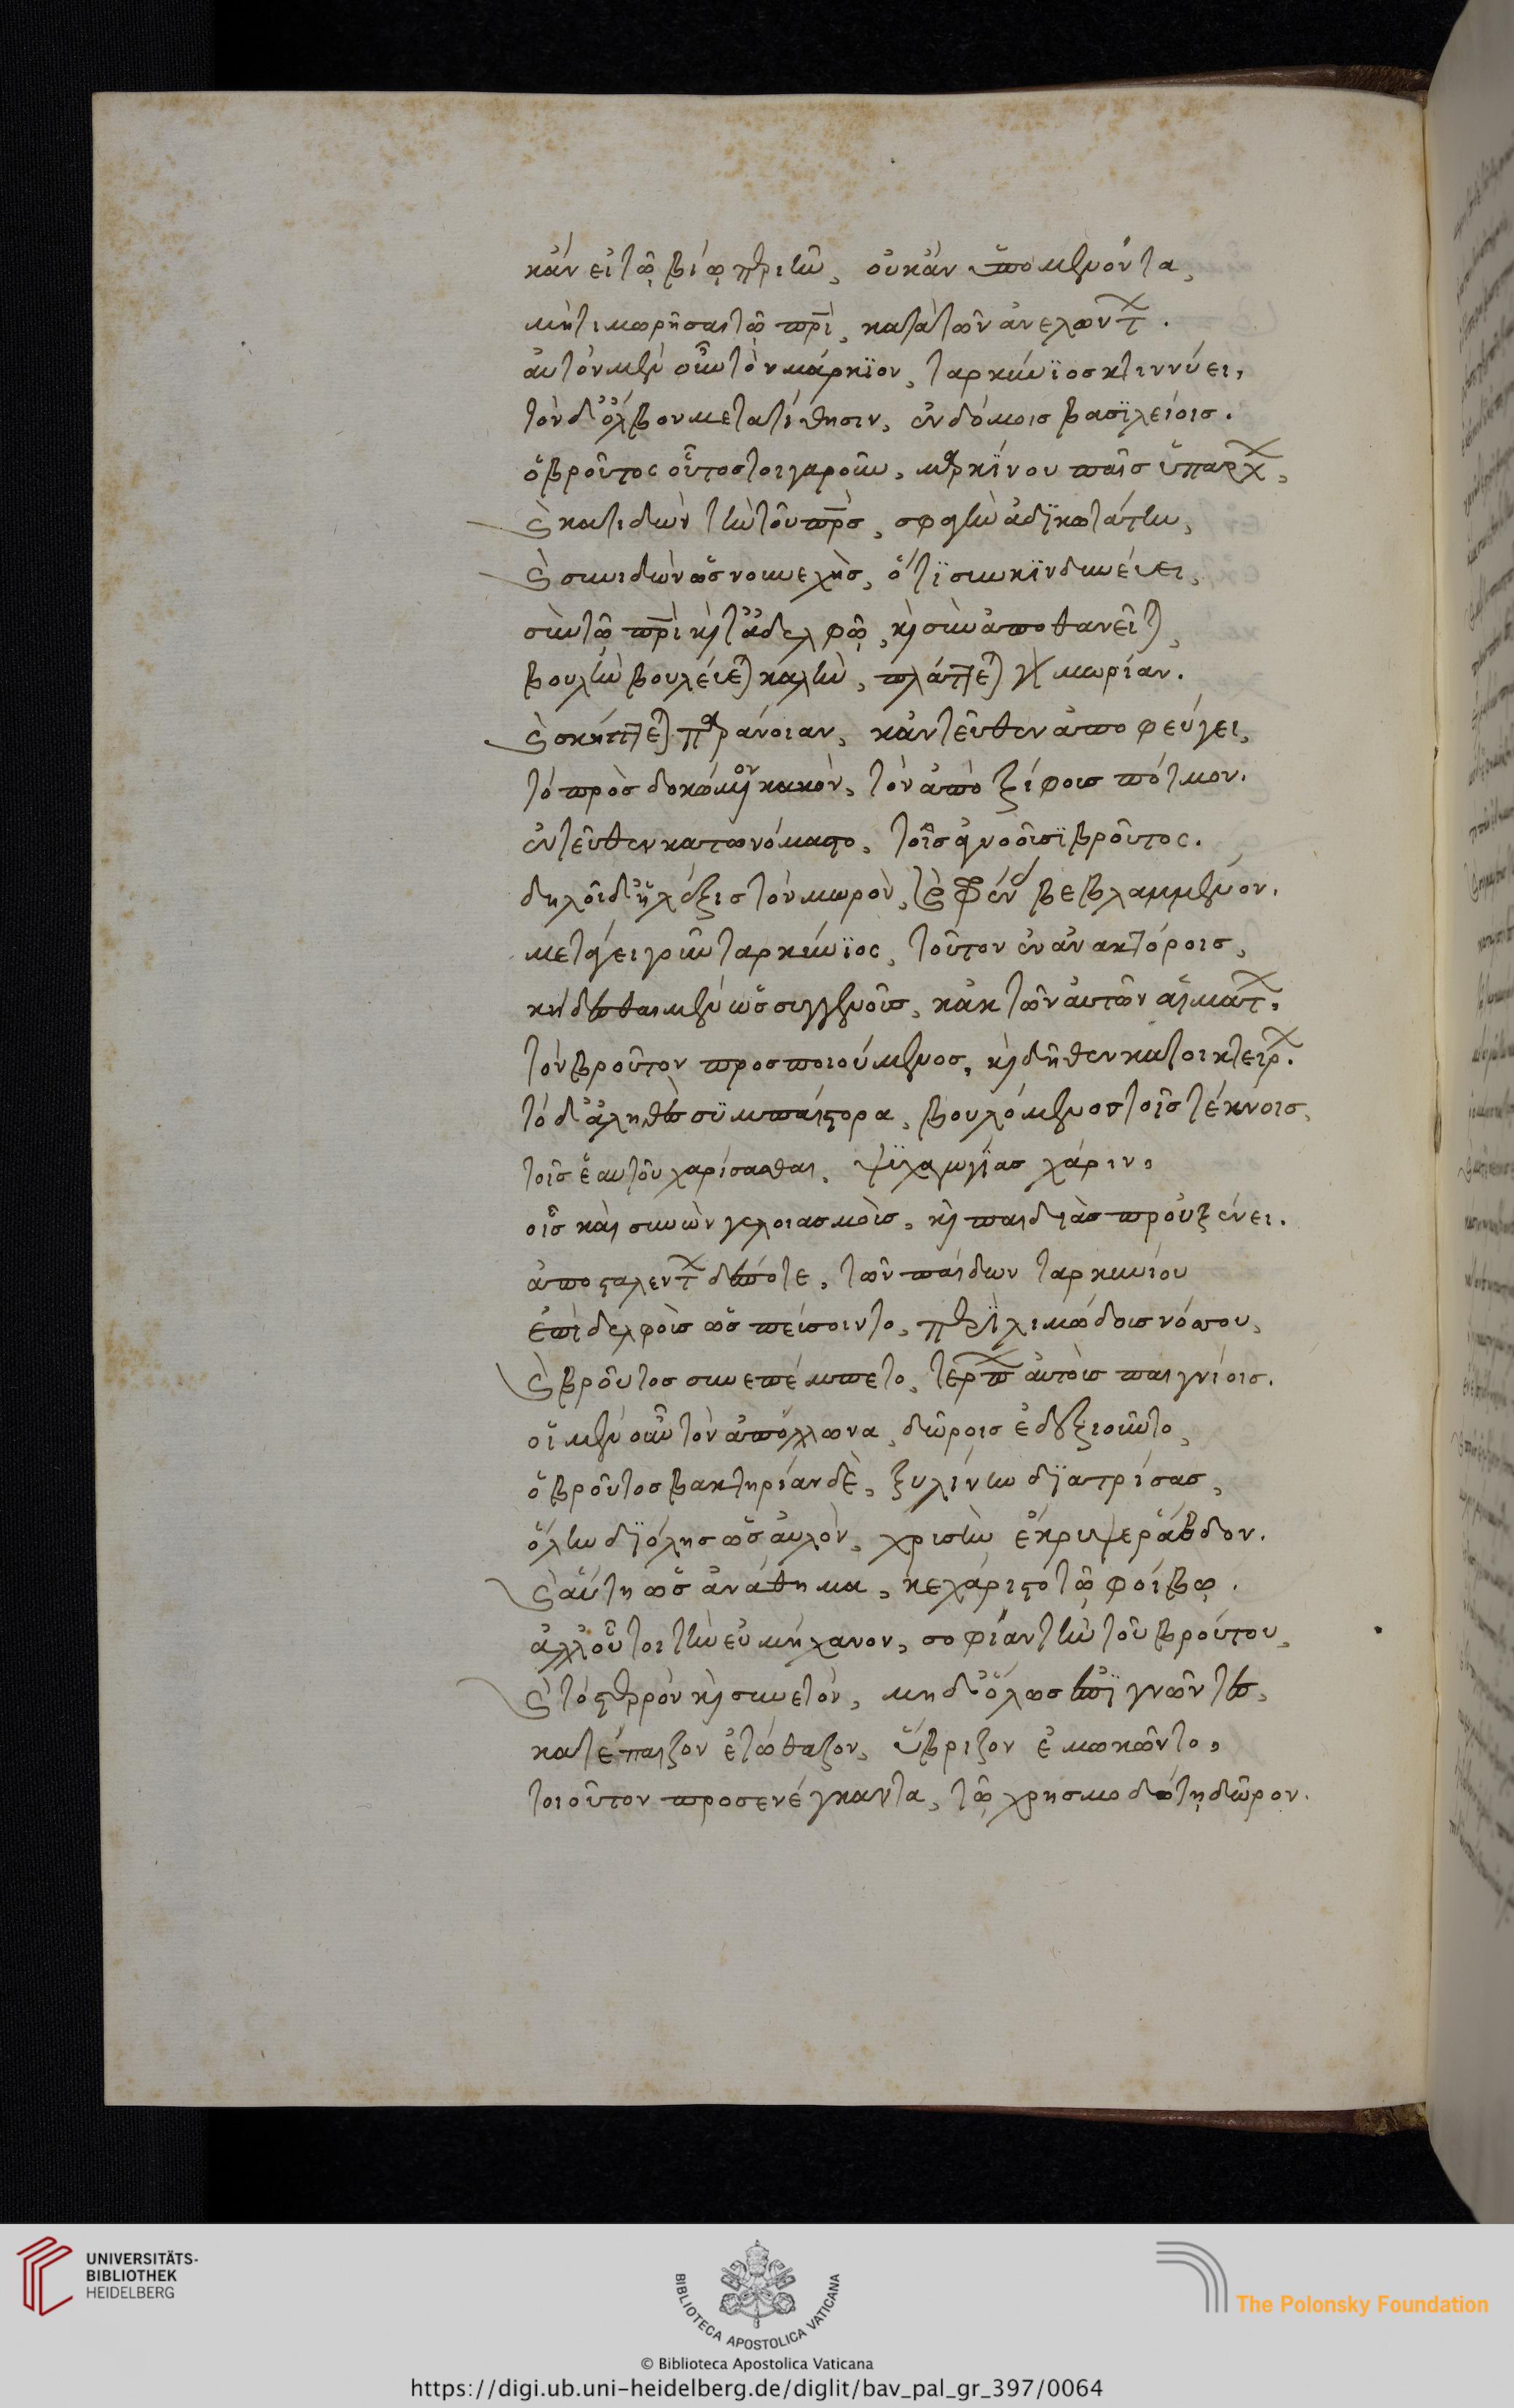 κἂν εἰ τῷ βίῳ περιῆν, οὐκ ἂν ὑπομένοντα,
μὴ τιμωρῆσαι τῷ πρὶ, κατὰ τῶν ἀνελόντ.
αὐτὸν μὲν οὖν τὸν μάρκϊον, ταρκύνϊος κτιννύει,
τὸν δ' ὄλβον μετατίθησιν, ἐν δόμοις βασϊλείοις.
ὁ βροῦτος οὗτος τοιγαροῦν, μαρκΐνου παῖς ὑπάρχ,
καὶ κατιδὼν τὴν τοῦ πρς, σφαγὴν ἀδϊκωτάτην,
καὶ συνιδὼν ὡς νουνεχὴς, ὅτϊ συγκϊνδυνεύει,
σὺν τῷ πρὶ καὶ τἀδελφῷ, καὶ συναποθανεῖται,
βουλὴν βουλεύεται καλὴν, πλάττεται γὰρ μωρίαν.
καὶ σκήπτεται παράνοιαν, κἀντεῦθεν ἀποφεύγει,
τὸ προσδοκώμενον κακὸν, τὸν ἀπὸ ξίφους πότμον.
ἐντεῦθεν κατωνόμαστο, τοῖς ἀγνοοῦσϊ βροῦτος.
δηλοῖ δ' ἡ λέξις τὸν μωρὸν, καὶ φρένας βεβλαμμένον.
μετάγει γοῦν ταρκύνϊος, τοῦτον ἐν ἀνακτόροις,
κήδεσθαι μὲν ὡς συγγενοῦς, κἀκ τῶν αὐτῶν αἱμάτ,
τὸν βροῦτον προσποιούμενος, καὶ δῆθεν κατοικτείρ.
τὸ δ' ἀληθὲς συμπαίστορα, βουλόμενος τοῖς τέκνοις,
τοῖς ἑαυτοῦ χαρίσασθαι, ψϋχαγωγΐας χάριν,
οἷς καὶ συνὼν γελοιασμοὺς, καὶ παιδϊὰς προὐξένει.
ἀποσταλέντ δέ ποτε, τῶν παίδων ταρκυνίου
ἐπὶ δελφοὺς ὡς πείσοιντο, περὶ λιμώδους νόσου,
καὶ βροῦτος συνεπέμπετο, τέρπ αὐτοὺς παιγνίοις.
οἱ μὲν οὖν τὸν ἀπόλλωνα, δώροις ἐδεξιοῦντο,
ὁ βροῦτος βακτηρίαν δὲ, ξυλίνην δϊατρίσας,
ὅλην δϊόλης ὡς αὐλὸν, χρυσὴν ἔκρυψε ῥάβδον.
καὶ αὕτη ὡς ἀνάθημα, κεχάριστο τῷ φοίβῳ.
ἀλλ' οὗτοι τὴν εὐμήχανον, σοφίαν τὴν τοῦ βρούτου,
καὶ τὸ στερρὸν καὶ συνετὸν, μηδ' ὅλως ἐπϊγνῶντες,
κατέπαιζον ἐτώθαζον, ὕβριζον ἐμωκῶντο,
τοιοῦτον προσενέγκαντα, τῷ χρησμοδότῃ δῶρον.
UNIVERSITÄTS-
BIBLIOTHEK
HEIDELBERG
BIBLIOTECA APOSTOLICA VATICANA
The Polonsky Foundation
© Biblioteca Apostolica Vaticana
https://digi.ub.uni-heidelberg.de/diglit/bav_pal_gr_397/0064